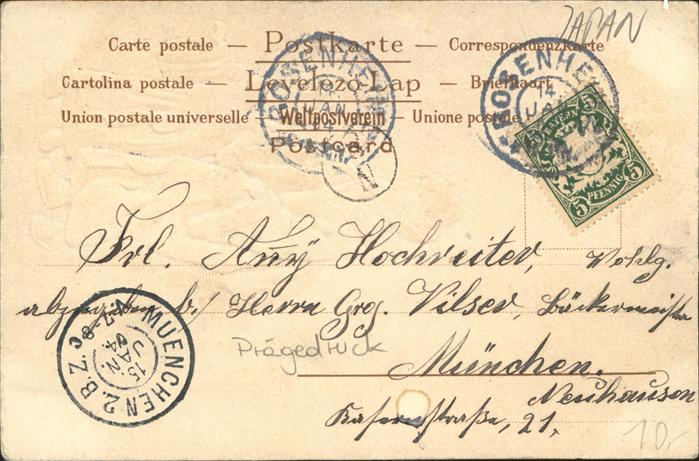 JAPAN
Carte postale — Postkarte — Correspondenzkarte
Cartolina postale — Levelező-Lap — Briefkaart
Union postale universelle — Weltpostverein — Unione postale
Postcard
14 JAN
JAN 04
N
BAYERN
5 5
PFENNIG
Frl. Anny Hochreiter, Wohlg.
abzugeben b/ Herrn Grg. Vilser, Bäckermeister
Prägedruck
München.
Neuhausen
Kasernstraße, 21,
MUENCHEN 2. B.Z. c
15 JAN 04
N. 7-8
10,-